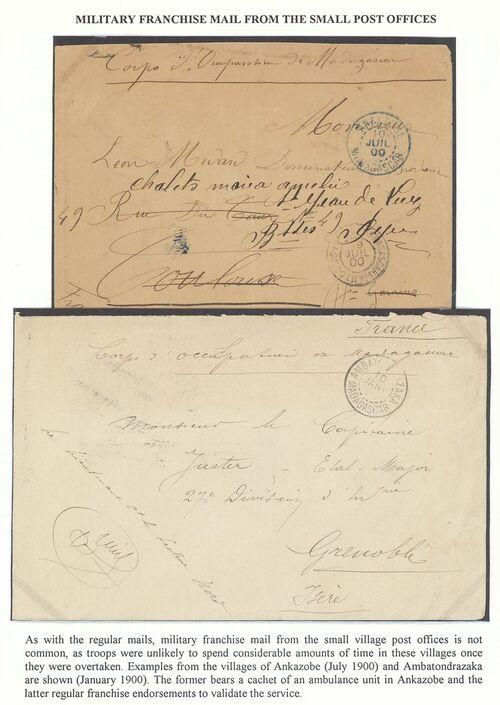 MILITARY FRANCHISE MAIL FROM THE SMALL POST OFFICES
Corps d'Occupation de Madagascar
Monsieur
Léon Medan Dessinateur
chalets maria amelie
49 Rue Du
St Jean de Luz
Btes Pyr
Toulouse
Hte Garonne
10
JUIL
00
MADAGASCAR
9
JUIL
00
France
Corps d'occupation de Madagascar
AMBAT ZAKA
10
JANV
MADAGASCAR
Monsieur le Capitaine
Juster - Etat-Major
27e Division d'Infrie
Grenoble
Isère
As with the regular mails, military franchise mail from the small village post offices is not
common, as troops were unlikely to spend considerable amounts of time in these villages once
they were overtaken. Examples from the villages of Ankazobe (July 1900) and Ambatondrazaka
are shown (January 1900). The former bears a cachet of an ambulance unit in Ankazobe and the
latter regular franchise endorsements to validate the service.